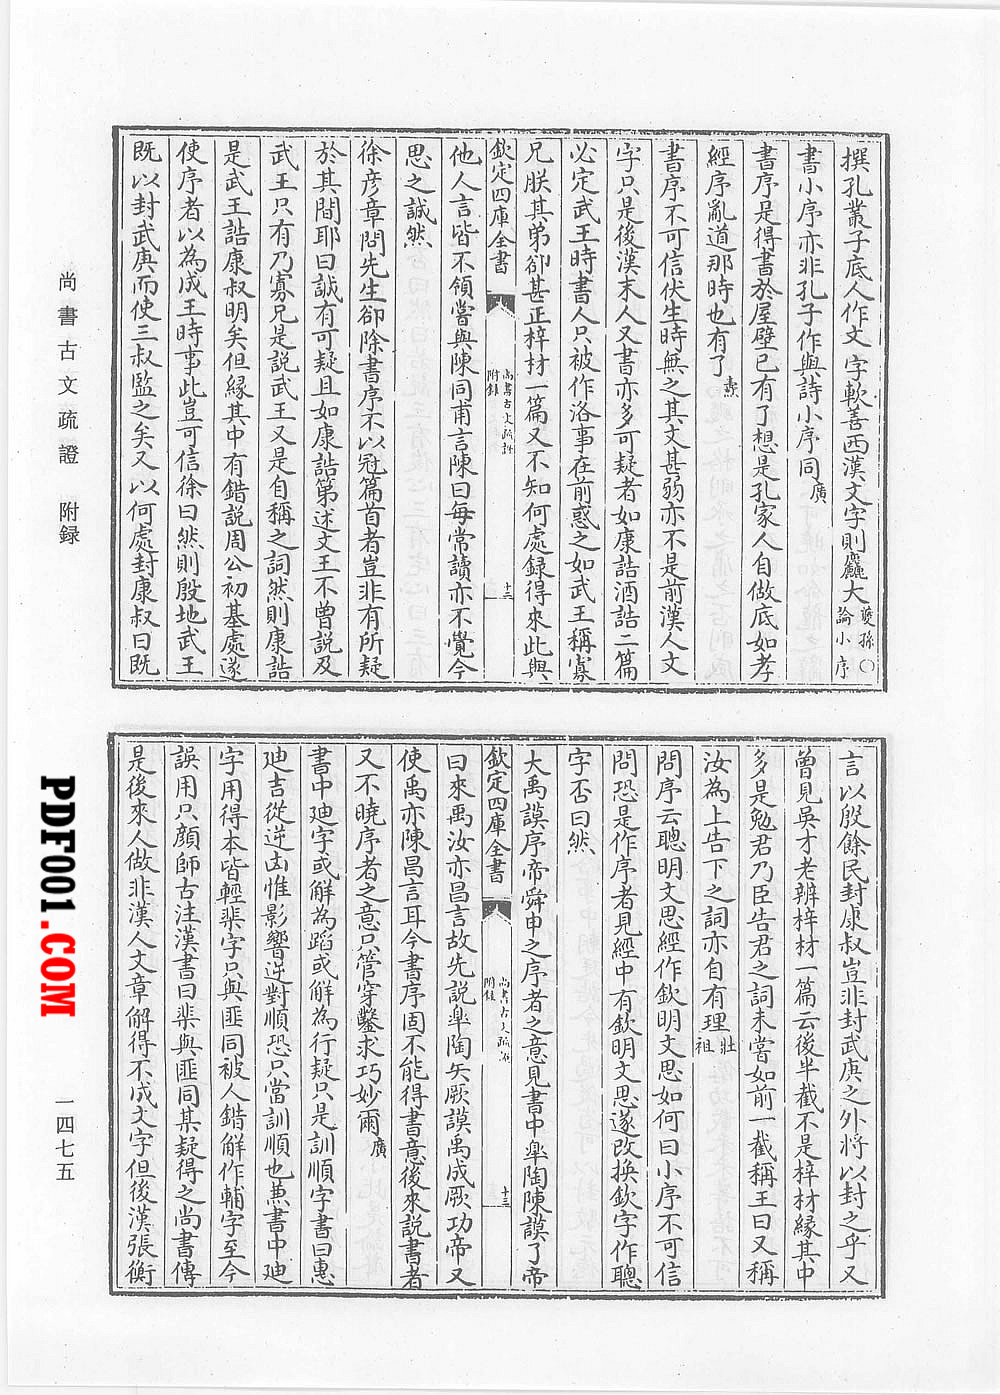 撰孔叢子底人作文字軟善西漢文字則麤大夔孫〇論小序
書小序亦非孔子作與詩小序同廣
書序是得書於屋壁已有了想是孔家人自做底如孝
經序亂道那時也有了燾
書序不可信伏生時無之其文甚弱亦不是前漢人文
字只是後漢末人又書亦多可疑者如康誥酒誥二篇
必定武王時書人只被作洛事在前惑之如武王稱寡
兄朕其弟卻甚正梓材一篇又不知何處錄得來此與
欽定四庫全書
尚書古文疏證
附錄
十二
他人言皆不領嘗與陳同甫言陳曰每常讀亦不覺今
思之誠然
徐彥章問先生卻除書序不以冠篇首者豈非有所疑
於其間耶曰誠有可疑且如康誥第述文王不曾說及
武王只有乃寡兄是說武王又是自稱之詞然則康誥
是武王誥康叔明矣但緣其中有錯說周公初基處遂
使序者以為成王時事此豈可信徐曰然則殷地武王
既以封武庚而使三叔監之矣又以何處封康叔曰既
言以殷餘民封康叔豈非封武庚之外將以封之乎又
曾見吳才老辨梓材一篇云後半截不是梓材緣其中
多是勉君乃臣告君之詞未嘗如前一截稱王曰又稱
汝為上告下之詞亦自有理壯祖
問序云聰明文思經作欽明文思如何曰小序不可信
問恐是作序者見經中有欽明文思遂改換欽字作聰
字否曰然
大禹謨序帝舜申之序者之意見書中臯陶陳謨了帝
欽定四庫全書
尚書古文疏證
附錄
十三
曰來禹汝亦昌言故先說臯陶矢厥謨禹成厥功帝又
使禹亦陳昌言耳今書序固不能得書意後來說書者
又不曉序者之意只管穿鑿求巧妙爾廣
書中迪字或解為蹈或解為行疑只是訓順字書曰惠
迪吉從逆凶惟影響逆對順恐只當訓順也兼書中迪
字用得本皆輕棐字只與匪同被人錯解作輔字至今
誤用只顏師古注漢書曰棐與匪同某疑得之尚書傳
是後來人做非漢人文章解得不成文字但後漢張衡
尚書古文疏證 附録
一四七五
PDF001.COM